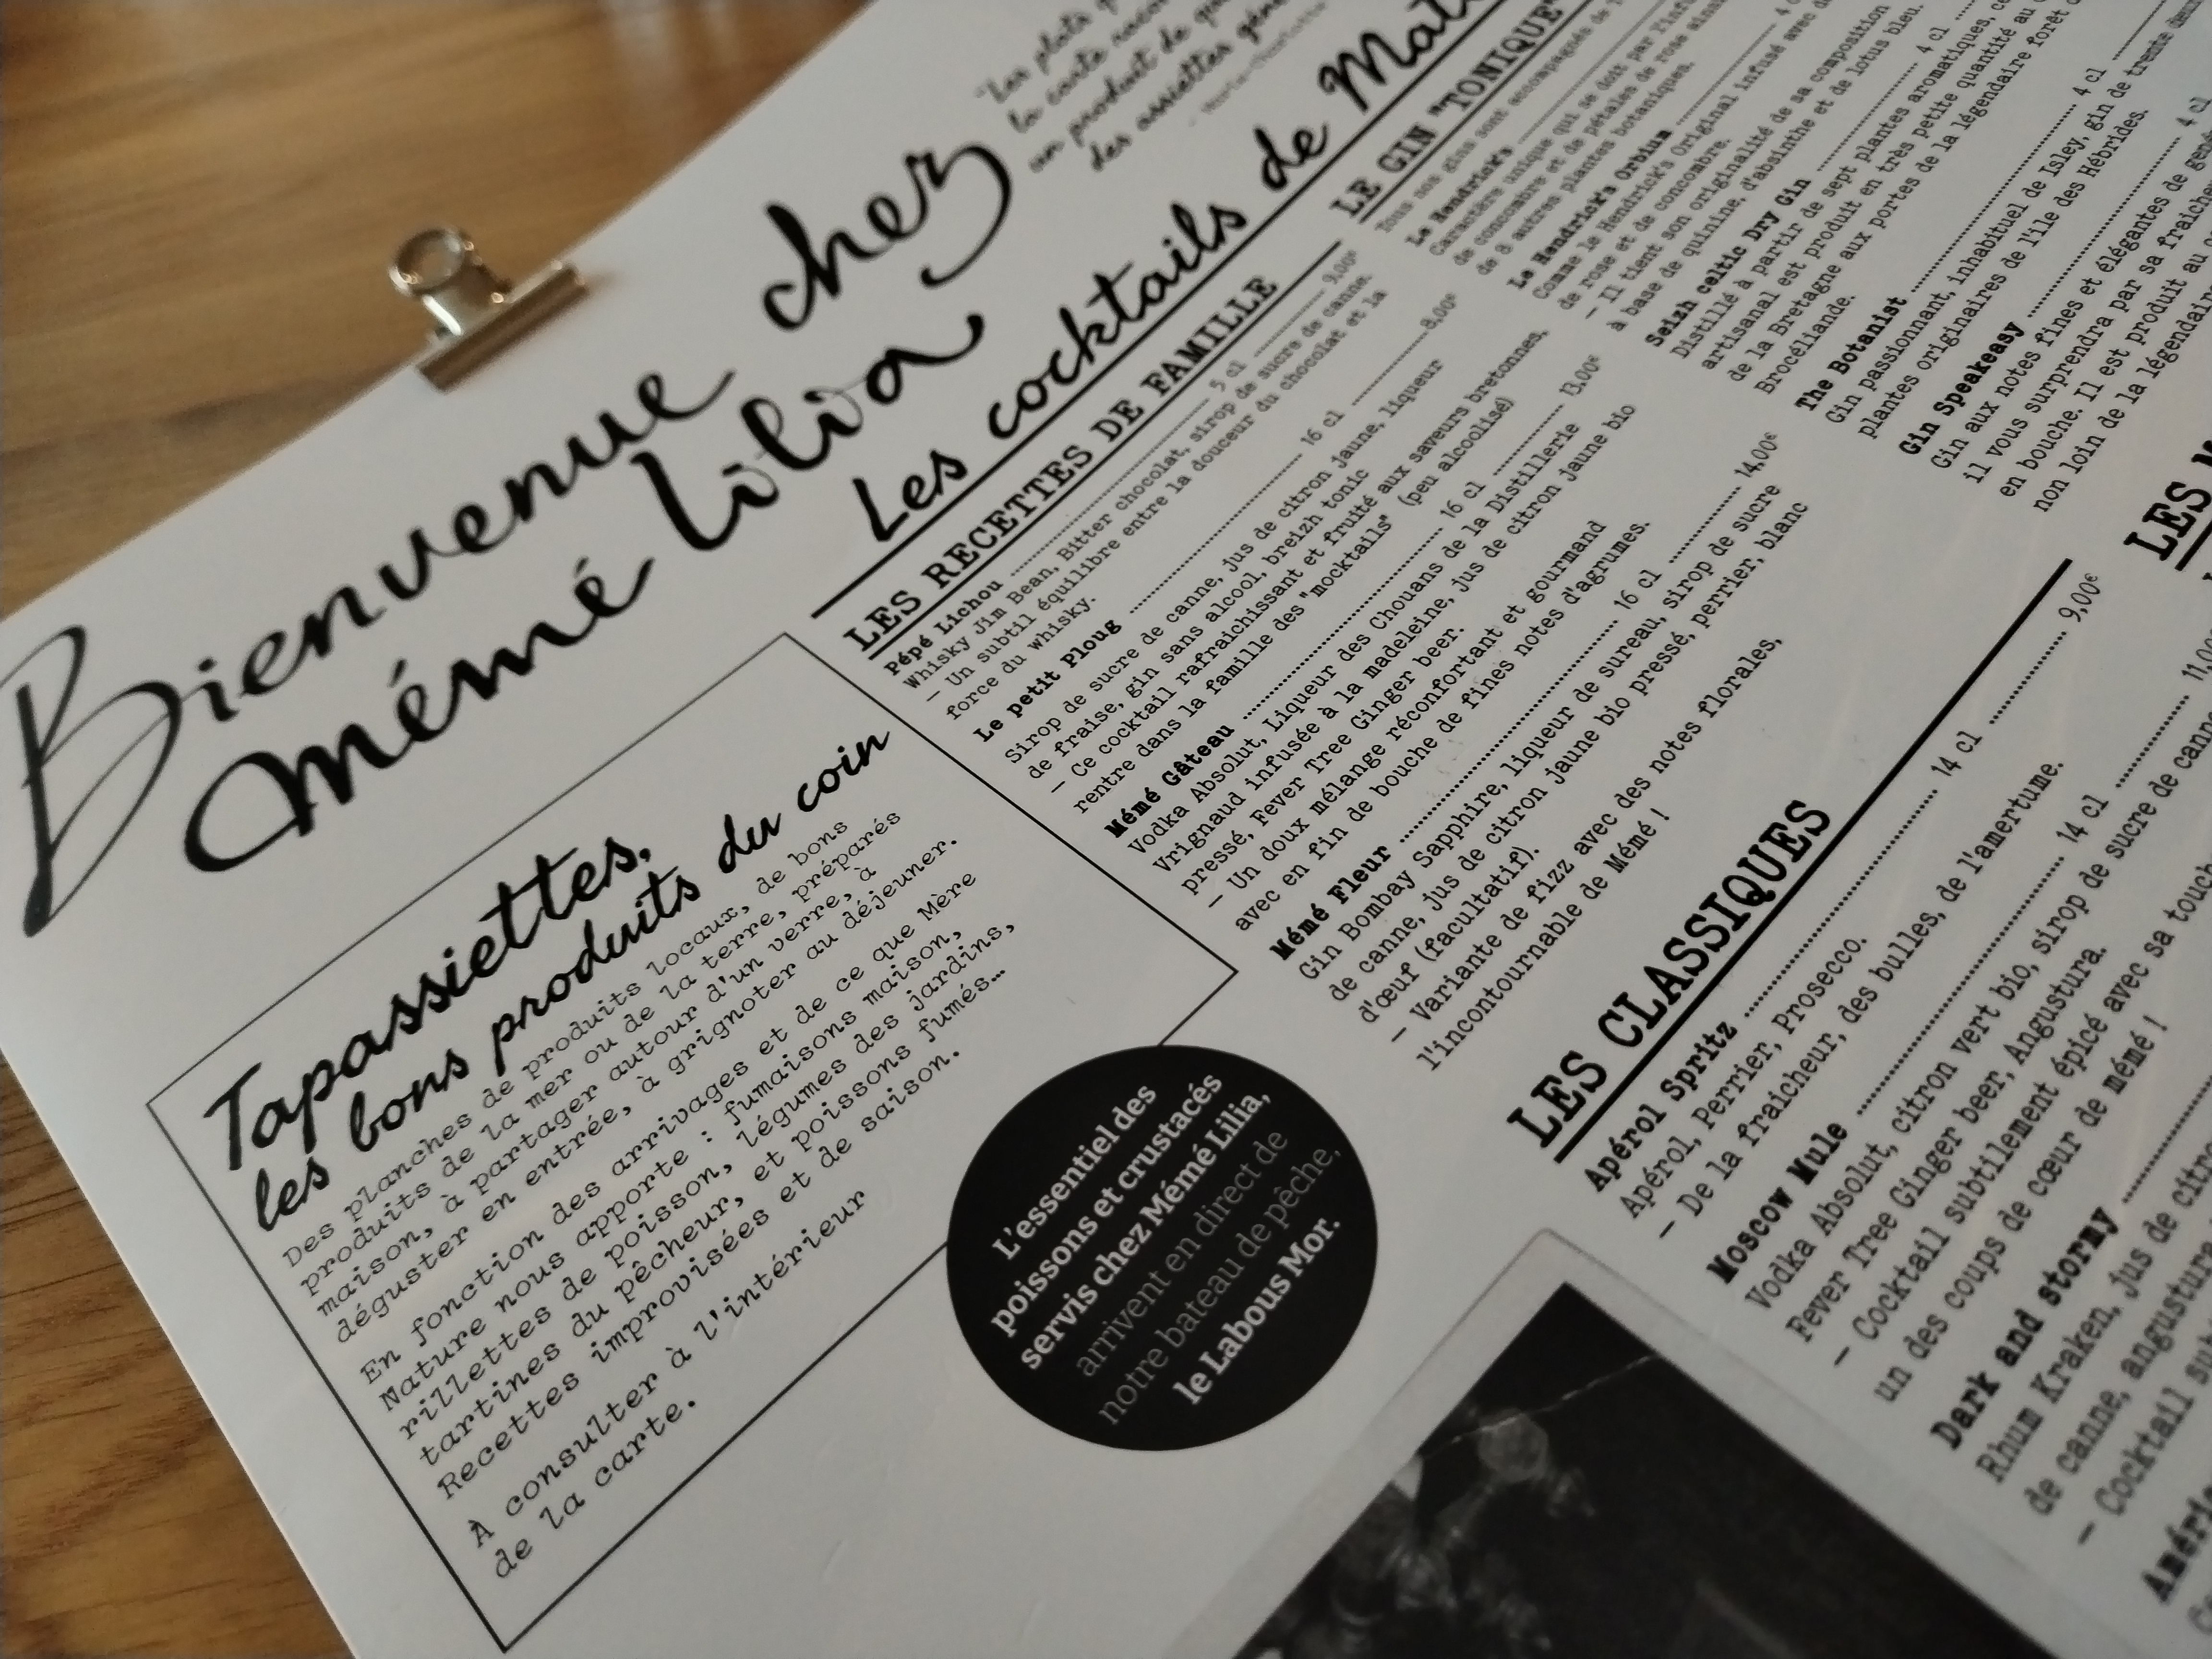 Bienvenue chez
Mémé Lilia
"Les plats
la carte
un produit de
des assiettes
Tapassiettes,
les bons produits du coin
Des planches de produits locaux, de bons
produits de la mer ou de la terre, préparés
maison, à partager autour d'un verre, à
déguster en entrée, à grignoter au déjeuner.
En fonction des arrivages et de ce que Mère
Nature nous apporte : fumaisons maison,
rillettes de poisson, légumes des jardins,
tartines du pêcheur, et poissons fumés…
Recettes improvisées et de saison.
À consulter à l'intérieur
de la carte.
L'essentiel des
poissons et crustacés
servis chez Mémé Lilia,
arrivent en direct de
notre bateau de pêche,
le Labous Mor.
Les cocktails de
LES RECETTES DE FAMILLE
Pépé Lichou 5 cl 9,00€
Whisky Jim Bean, Bitter chocolat, sirop de sucre de canne.
– Un subtil équilibre entre la douceur du chocolat et la
force du whisky.
Le petit Ploug 16 cl 8,00€
Sirop de sucre de canne, jus de citron jaune, liqueur
de fraise, gin sans alcool, breizh tonic
– Ce cocktail rafraichissant et fruité aux saveurs bretonnes,
rentre dans la famille des "mocktails" (peu alcoolisé)
Mémé Gâteau 16 cl 13,00€
Vodka Absolut, Liqueur des Chouans de la Distillerie
Vrignaud infusée à la madeleine, jus de citron jaune bio
pressé, Fever Tree Ginger beer.
– Un doux mélange réconfortant et gourmand
avec en fin de bouche de fines notes d'agrumes.
Mémé Fleur 16 cl 14,00€
Gin Bombay Sapphire, liqueur de sureau, sirop de sucre
de canne, jus de citron jaune bio pressé, perrier, blanc
d'œuf (facultatif).
– Variante de fizz avec des notes florales,
l'incontournable de Mémé !
LES CLASSIQUES
Apérol Spritz 14 cl 9,00€
Apérol, Perrier, Prosecco.
– De la fraicheur, des bulles, de l'amertume.
Moscow Mule 14 cl 11,00
Vodka Absolut, citron vert bio, sirop de sucre de canne
Fever Tree Ginger beer, Angustura.
– Cocktail subtilement épicé avec sa
un des coups de cœur de mémé !
Dark and stormy
Rhum Kraken, jus de
de canne, angustura
– Cocktail
LE GIN "TONIQUE"
Tous nos gins sont accompagnés de
Le Hendrick's
Caractère unique qui se doit par
de concombre et de pétales de rose
de 8 autres plantes botaniques.
Le Hendrick's Orbium
Comme le Hendrick's Original infusé avec
de rose et de concombre.
– Il tient son originalité de sa composition
à base de quinine, d'absinthe et de lotus bleu.
Seizh celtic Dry Gin 4 cl
Distillé à partir de sept plantes aromatiques, ce
artisanal est produit en très petite quantité au
de la Bretagne aux portes de la légendaire forêt
Brocéliande.
The Botanist 4 cl
Gin passionnant, inhabituel de Isley, gin de trente
plantes originaires de l'ile des Hébrides.
Gin Speakeasy 4 cl
Gin aux notes fines et élégantes de
il vous surprendra par sa fraicheur
en bouche. Il est produit au
non loin de la légendaire
LES